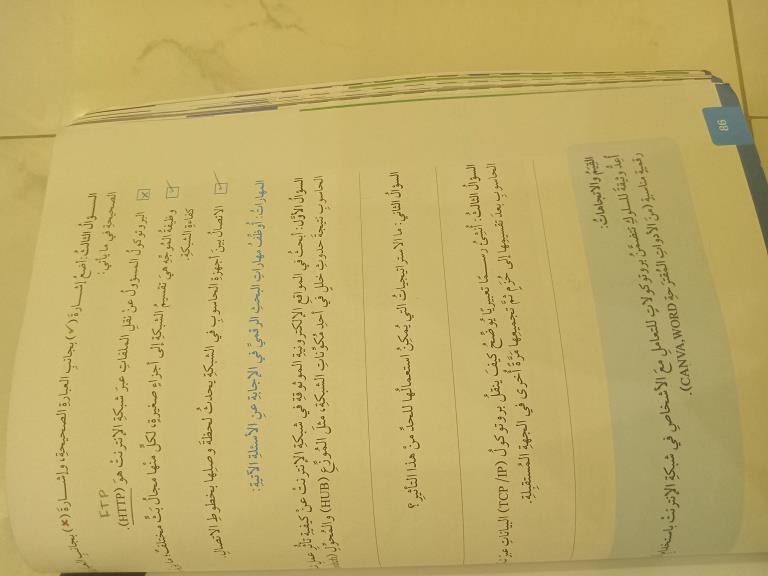 السؤال الثالث: أضعُ إشارةَ (✓) بجانبِ العبارةِ الصحيحةِ، وإشارةَ (✗) بجانبِ
الصحيحةِ في ما يأتي:
البروتوكولُ المسؤولُ عنْ نقلِ الملفاتِ عبرَ شبكةِ الإنترنتْ هوَ (HTTP).
FTP
وظيفةُ الموجّهِ هيَ تقسيمُ الشبكةِ إلى أجزاءٍ صغيرةٍ، لكلٍّ منها مجالُ بَثٍّ مختلفٌ
كفاءةِ الشبكةِ.
الاتصالُ بينَ أجهزةِ الحاسوبِ في الشبكةِ يحدثُ لحظةَ وصلِها بخطوطِ الاتصالِ.
المهاراتُ: أوظّفُ مهاراتِ البحثِ الرقميِّ في الإجابةِ عنِ الأسئلةِ الآتيةِ:
السؤالُ الأوّلُ: أبحثُ في المواقعِ الإلكترونيةِ الموثوقةِ في شبكةِ الإنترنتْ عنْ كيفيةِ تأثّرِ
الحاسوبِ نتيجةَ حدوثِ خللٍ في أحدِ مكوّناتِ الشبكةِ، مثلَ الموزّعِ (HUB) والمُحوّلِ
السؤالُ الثاني: ما الاستراتيجياتُ التي يُمكنُ استعمالُها للحدِّ منْ هذا التأثيرِ؟
السؤالُ الثالثُ: أُنشئُ رسمًا تعبيريًّا يُوضّحُ كيفَ ينقلُ بروتوكولُ (TCP/IP) البياناتِ عبرَ
الحاسوبِ بعدَ تقسيمِها إلى حُزَمٍ ثمَّ تجميعِها مَرَّةً أخرى في الجهةِ المُستقبِلةِ.
القِيَمُ والاتجاهاتُ:
أُعِدُّ وثيقةً للسلوكِ تتضمّنُ بروتوكولاتٍ للتعاملِ معَ الأشخاصِ في شبكةِ الإنترنتْ باستخدامِ
رقميةٍ مناسبةٍ (منَ الأدواتِ المُقترَحةِ CANVA, WORD).
86